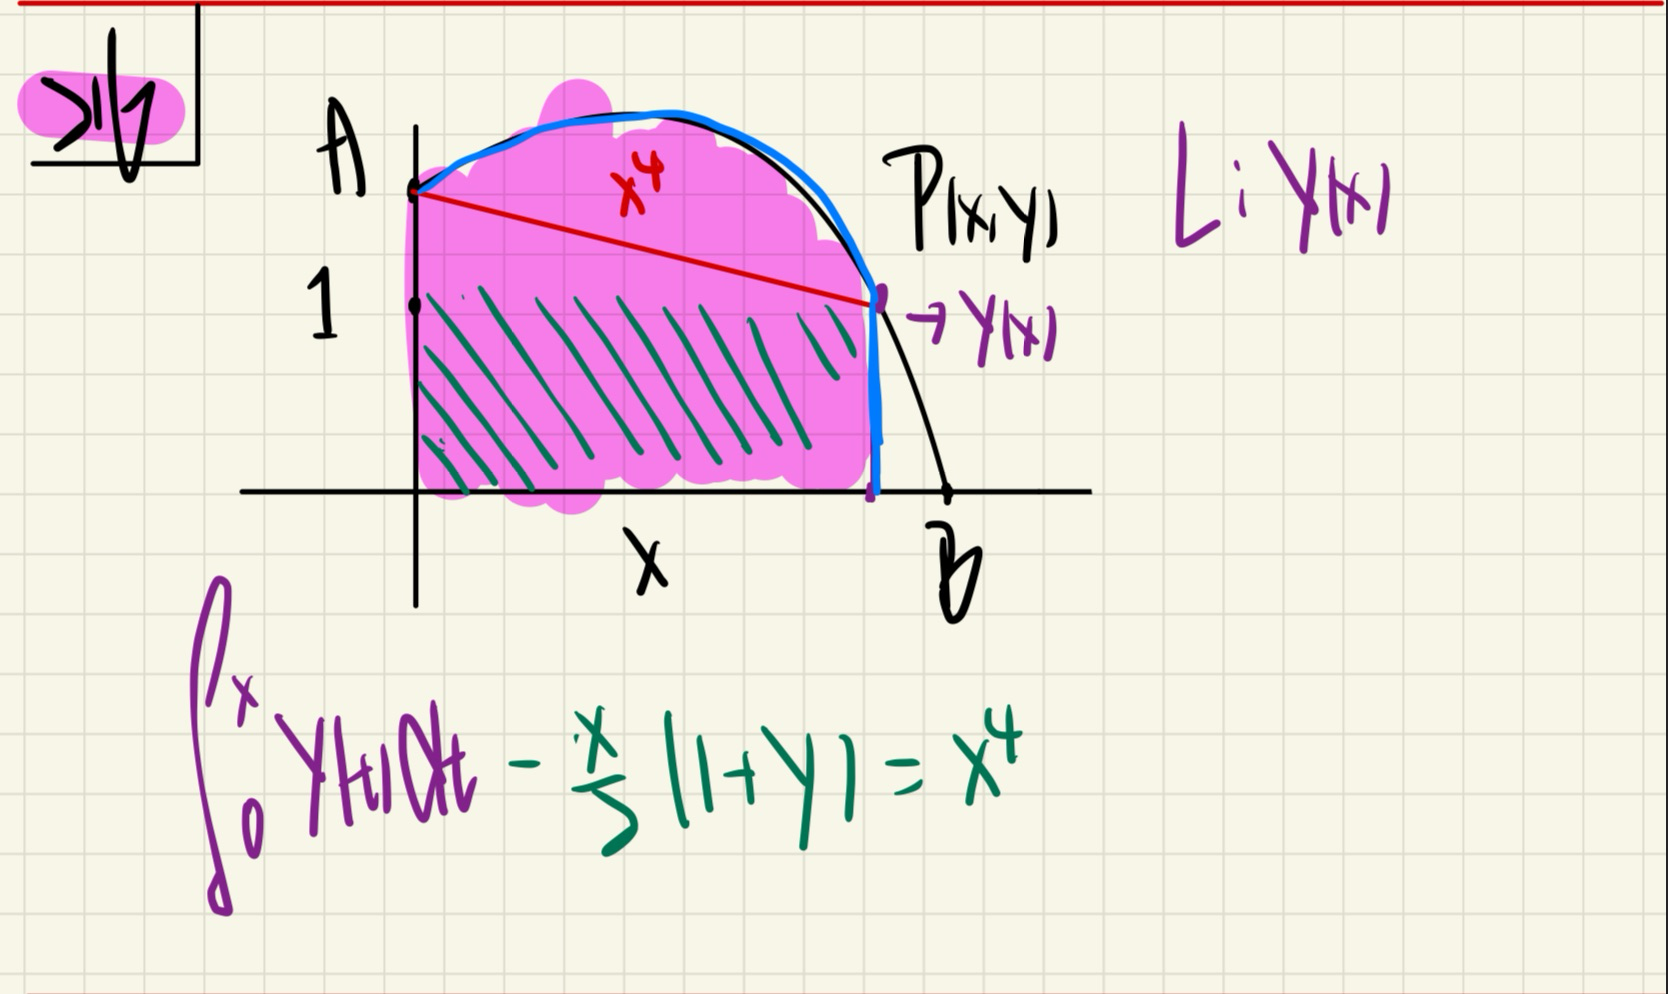 A
x⁴
P(x,y)
L : y(x)
1
→ y(x)
x
B
∫₀ˣ y(t)dt - x/2 (1+y) = x⁴